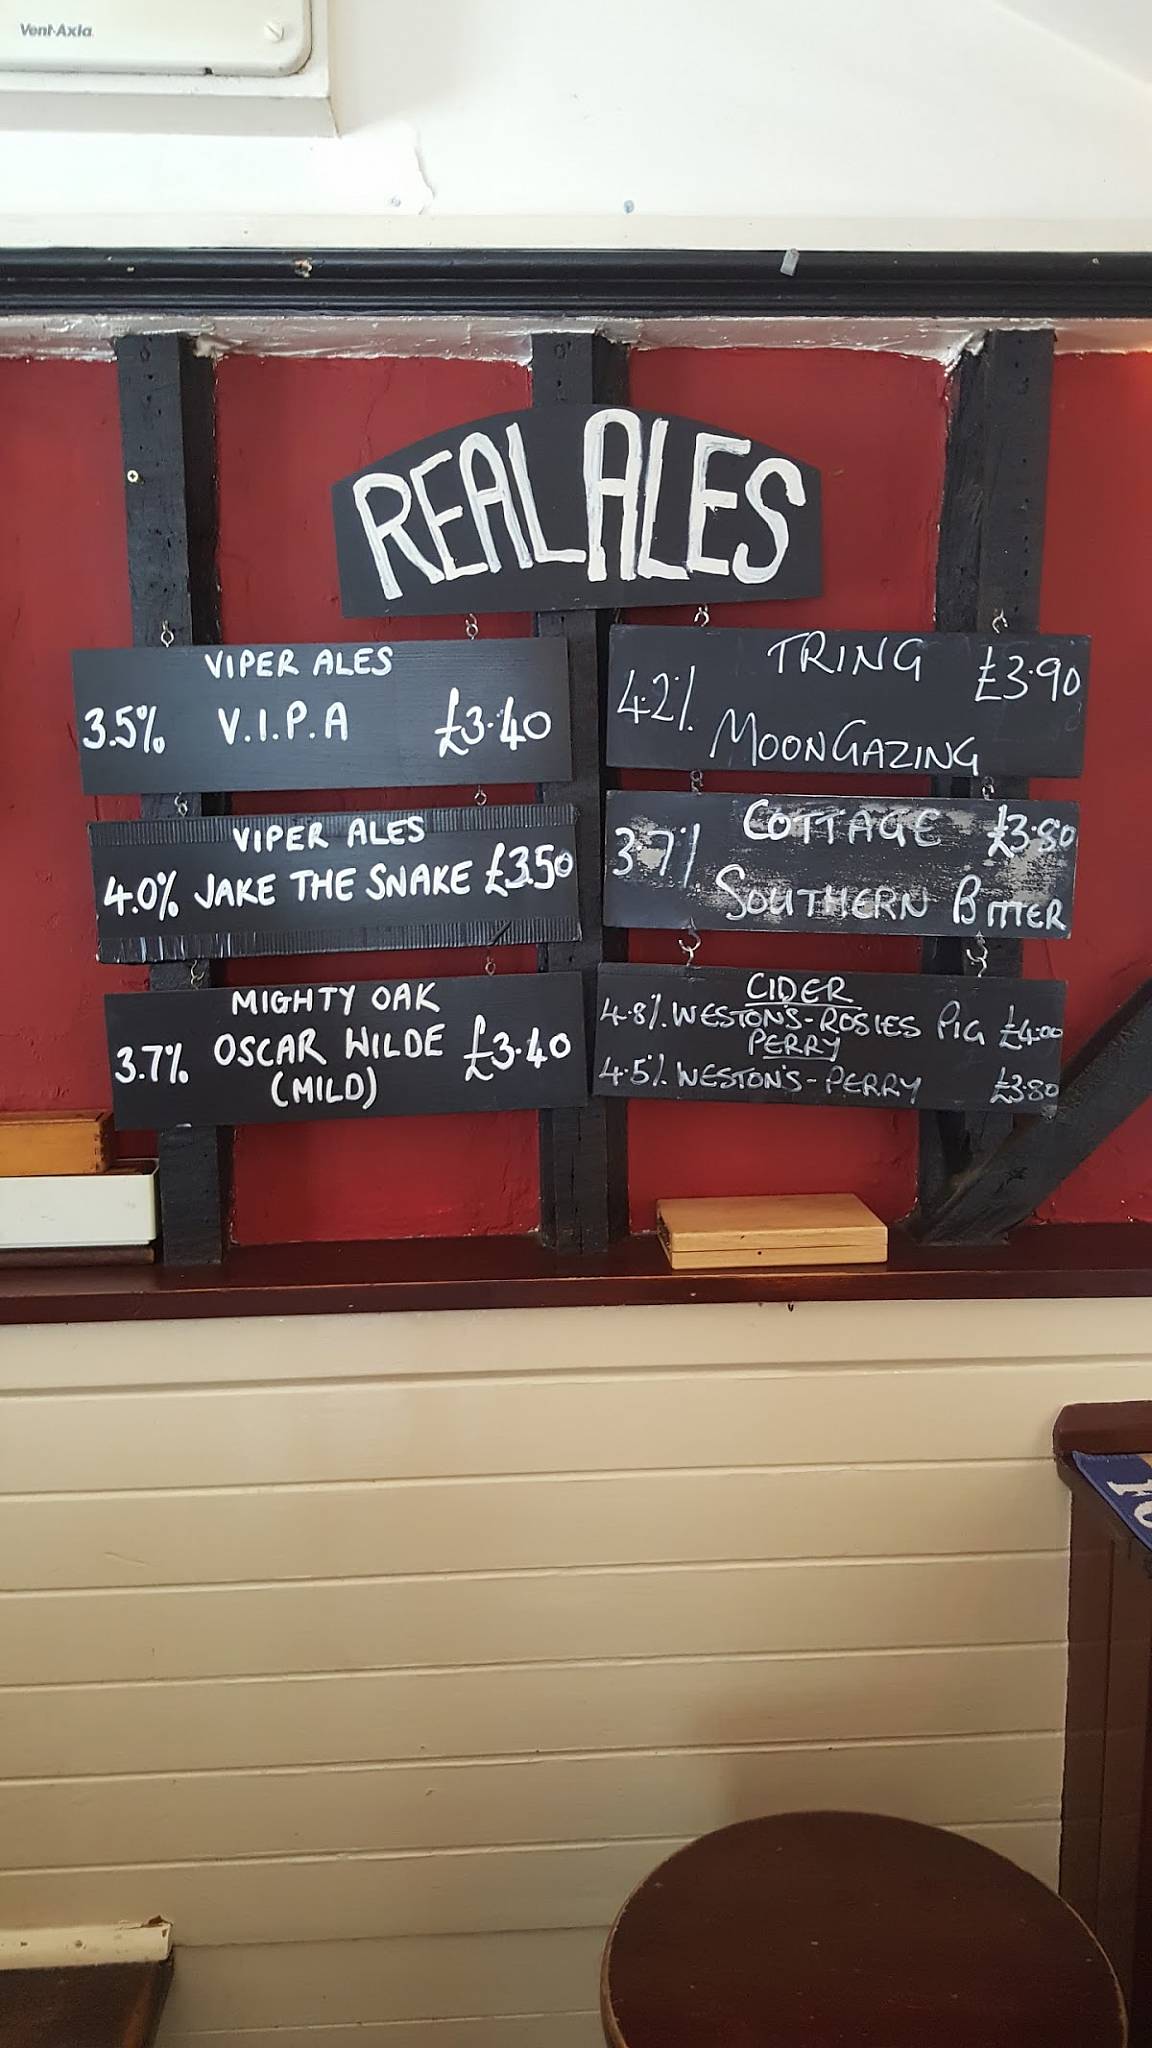 Vent-Axia
REAL ALES
VIPER ALES
3.5% V.I.P.A £3.40
VIPER ALES
4.0% JAKE THE SNAKE £3.50
MIGHTY OAK
3.7% OSCAR WILDE £3.40
(MILD)
TRING £3.90
4.2%
MOONGAZING
COTTAGE £3.80
3.7%
SOUTHERN BITTER
CIDER
4.8% WESTONS-ROSIES PIG £4.00
PERRY
4.5% WESTON'S-PERRY £3.80